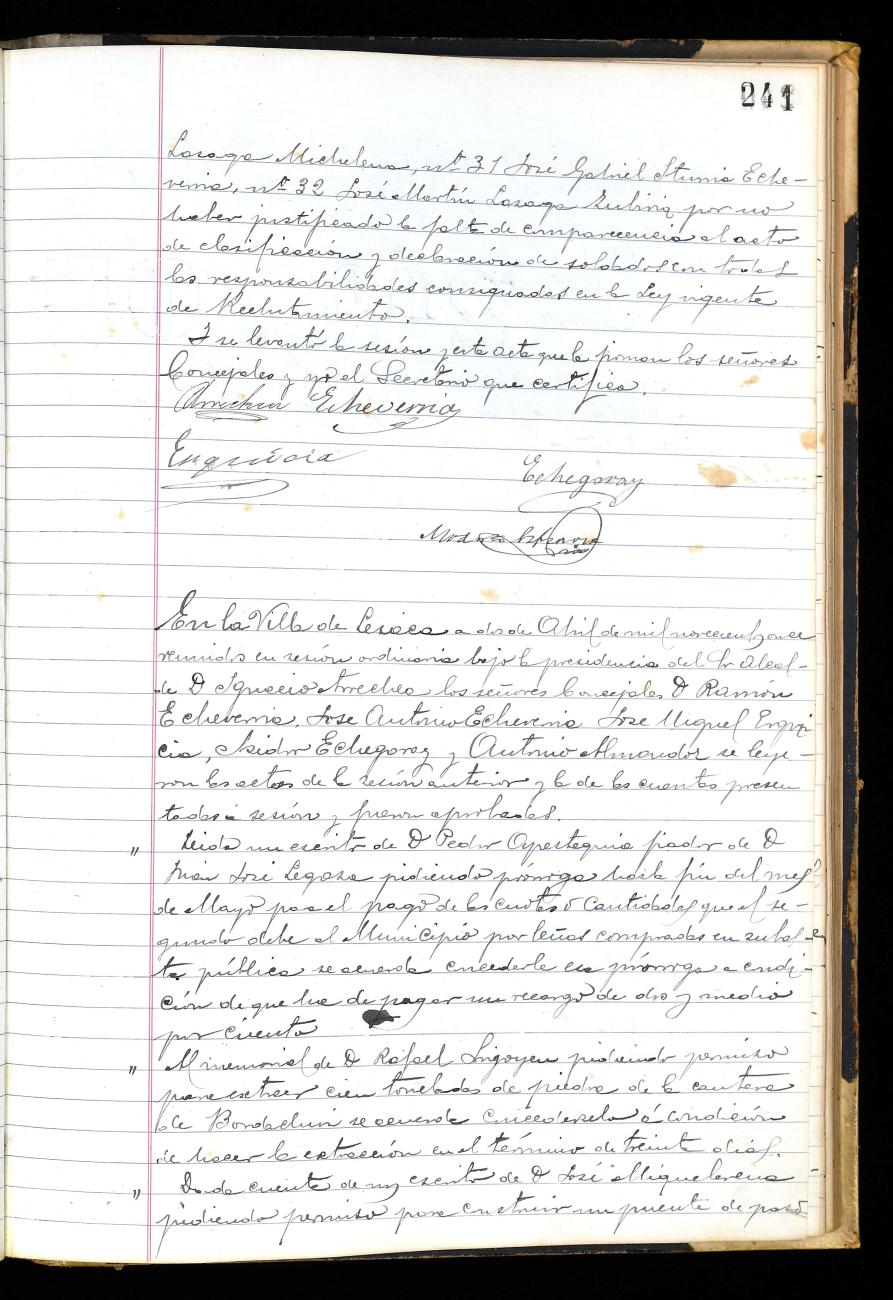 241
Lasaga Michelena, nº 31 José Gabriel Iturria Eche-
verria, nº 32 José Martín Lasaga Zubiria por no
haber justificado la falta de comparecencia al acto
de clasificación y declaración de soldados con todas
las responsabilidades consignadas en la Ley vigente
de Reclutamiento.
Y se levantó la sesión y esta acta que la firman los señores
Concejales y yo el Secretario que certifico.
Arrechea Echeverria
Erquicia
Echegaray
En la Villa de Lesaca a dos de Abril de mil novecientos once
reunidos en sesión ordinaria bajo la presidencia del Sr Alcal-
de D Ignacio Arrechea los señores Concejales D Ramón
Echeverria, Jose Antonio Echeverria Jose Miguel Erqui
cia, Isidor Echegaray y Antonio Almandoz se leye-
ron las actas de la sesión anterior y la de las cuentas presen
tadas a sesión y fueron aprobadas.
" Leida un escrito de D Pedro Apesteguia fiador de D
Juan José Legasa pidiendo prórroga hasta fin del mes
de Mayo para el pago de las cuotas o cantidades que el se-
gundo debe al Municipio por leñas compradas en subas-
ta pública se acuerda concederle esa prórroga a condi-
ción de que ha de pagar un recargo de dos y medio
por ciento
" Al memorial de D Rafael Irigoyen pidiendo permiso
para extraer cien toneladas de piedra de la cantera
de Bordachuri se acuerda concedersela á condición
de hacer la extracción en el término de treinta dias.
" Dada cuenta de un escrito de D José Miquelarena
pidiendo permiso para construir un puente de paso